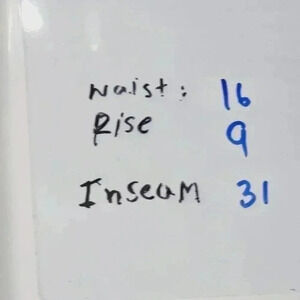 Waist: 16
Rise 9
Inseam 31